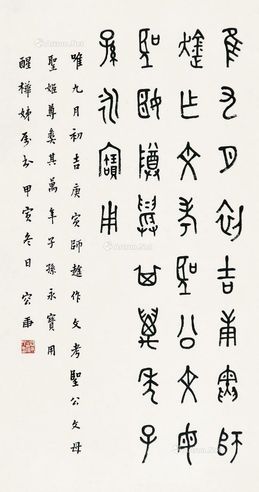 隹九月初吉庚寅師
趛乍文考聖公文母
聖姬尊彝其萬年子
孫永寶用
唯九月初吉庚寅師趛作文考聖公文母
聖姬尊彝其萬年子孫永寶用
醒樺姊屬书 甲寅冬日 容庚